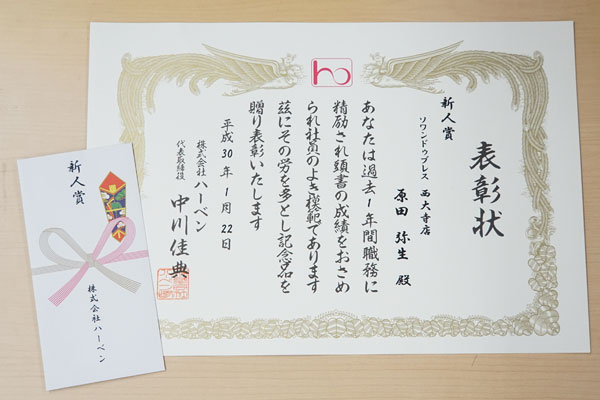 表彰状
新人賞
ソワンドゥプレス 西大寺店
原田 弥生 殿
あなたは過去1年間職務に
精励され頭書の成績をおさめ
られ社員のよき模範であります
茲にその労を多とし記念品を
贈り表彰いたします
平成30年1月22日
株式会社ハーベン
代表取締役 中川佳典
新人賞
株式会社ハーベン